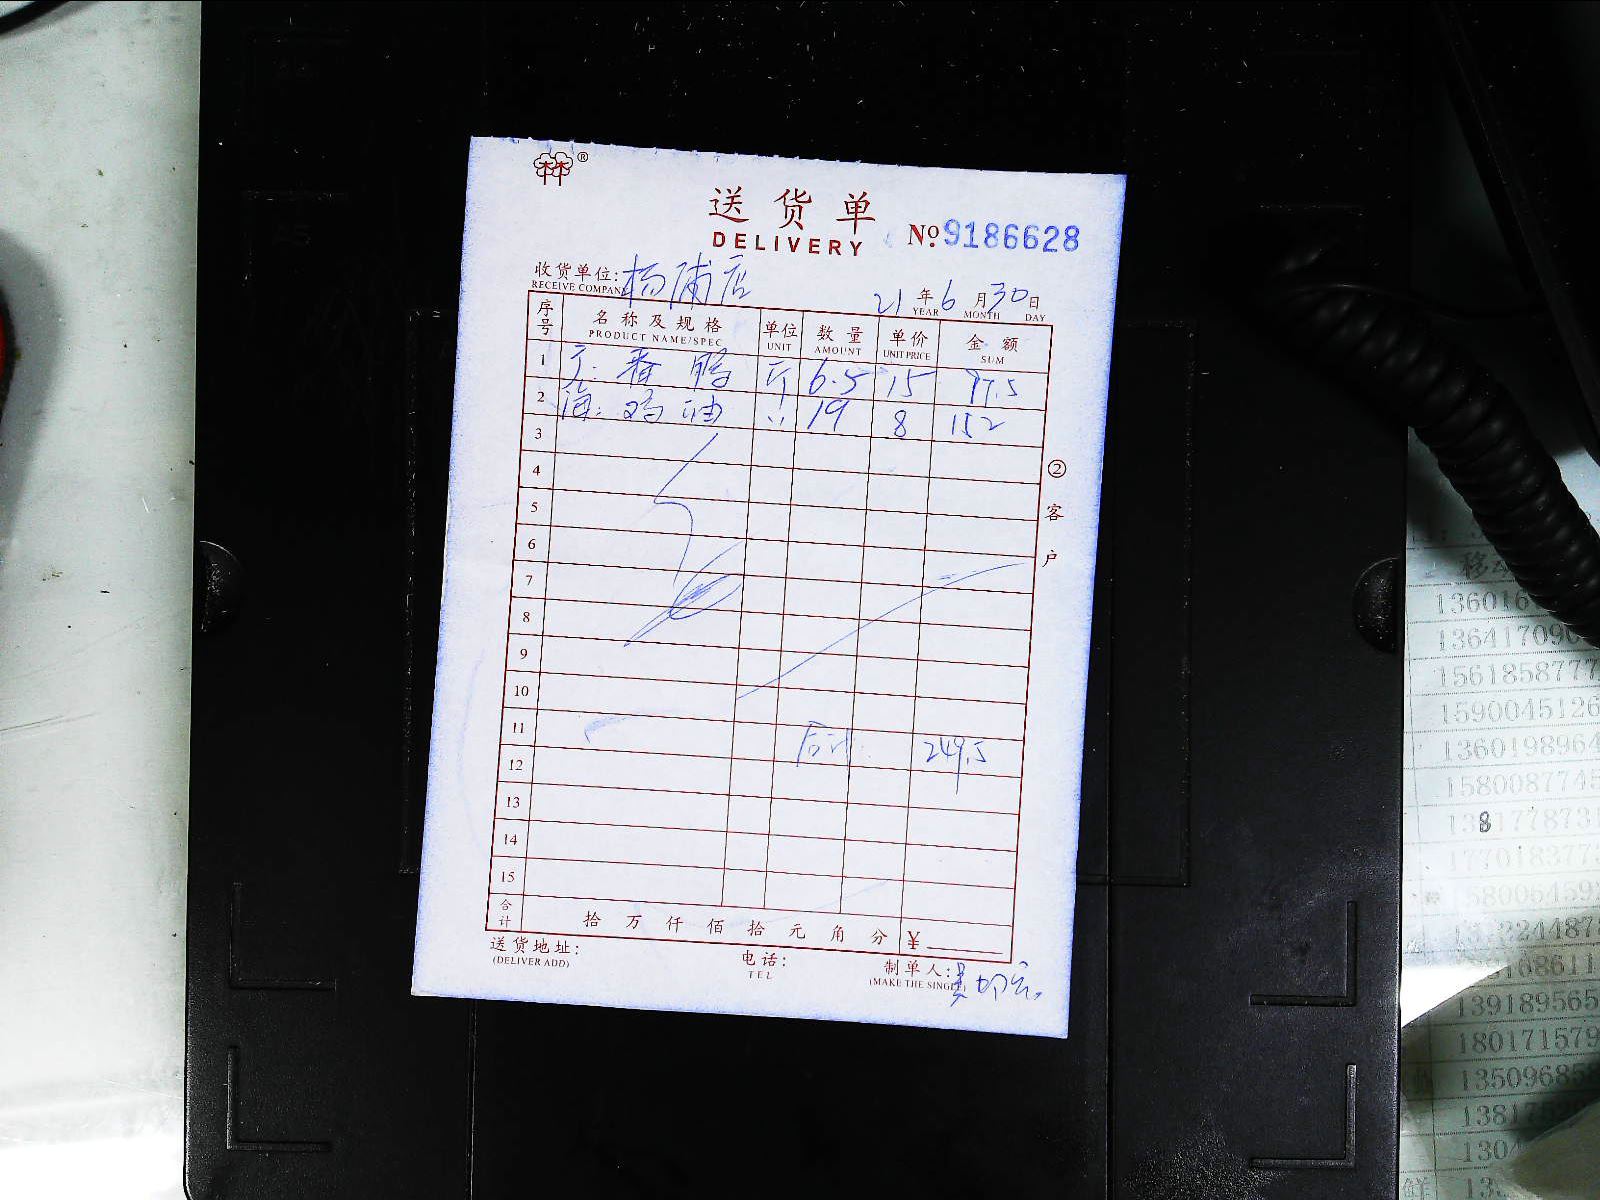 ®
送货单
DELIVERY
№ 9186628
收货单位: 杨浦店
RECEIVE COMPANY
21 年 6 月 30 日
YEAR MONTH DAY
序号 名称及规格 单位 数量 单价 金额
PRODUCT NAME/SPEC UNIT AMOUNT UNIT PRICE SUM
1 斤 6.5 15 97.5
2 鸡油 19 8 152
3
4
5
6
7
8
9
10
11 合计: 249.5
12
13
14
15
合计 拾 万 仟 佰 拾 元 角 分 ¥
② 客户
送货地址: 电话: 制单人:
(DELIVER ADD) TEL (MAKE THE SINGLE)
13641709
1561858777
1590045126
1360198964
1580087745
177018377
580064592
139189565
180171579
135096858